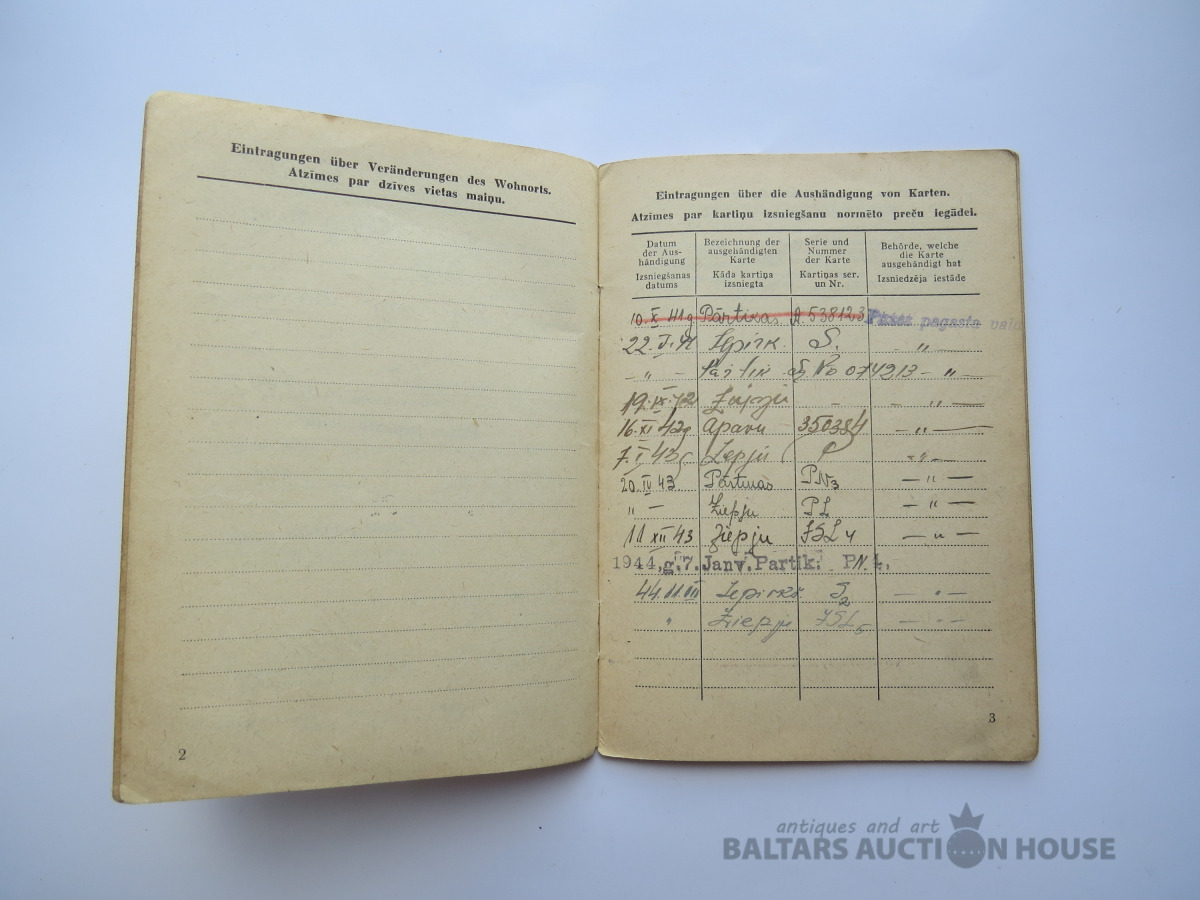 Eintragungen über Veränderungen des Wohnorts.
Atzīmes par dzīves vietas maiņu.
2
Eintragungen über die Aushändigung von Karten.
Atzīmes par kartiņu izsniegšanu normēto preču iegādei.
Datum der Aus-händigung
Izsniegšanas datums
Bezeichnung der ausgehändigten Karte
Kāda kartiņa izsniegta
Serie und Nummer der Karte
Kartiņas ser. un Nr.
Behörde, welche die Karte ausgehändigt hat
Izsniedzēja iestāde
10. X 41 g Pārtikas A. 538123 pagasta
22. S. - " -
- " - No 074213 - " -
- " -
16. XI 42g Apavu 350384 - " -
7. I 43g Ziepju - " -
20. IV 43. Pārtikas PN3 - " -
" - Ziepju PL - " -
11 XII 43 Ziepju JSL 4 - " -
1944.g.7.Janv.Partik. PN.4.
44. 11. III S2 - " -
" Ziepju JSL 5 - " -
3
antiques and art
BALTARS AUCTION HOUSE